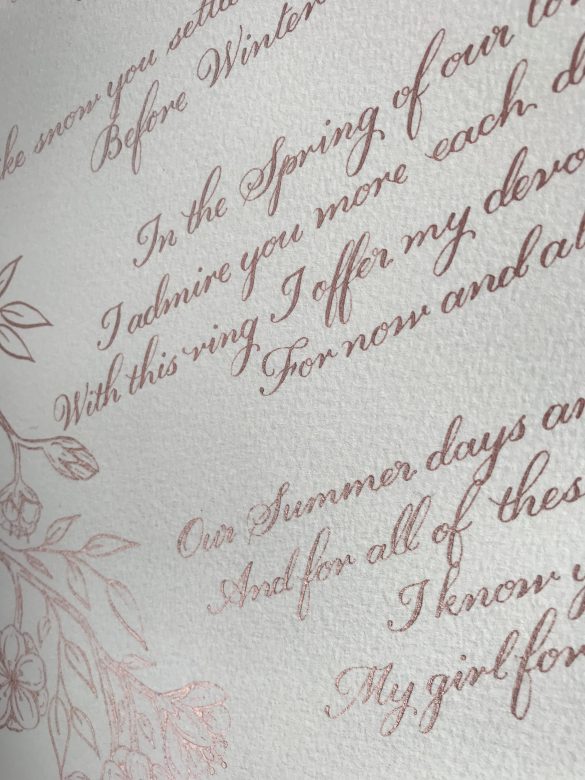 snow you
Before Winter
In the Spring of our
I admire you more each
With this ring I offer my
For now and
Our Summer days
And for all of
I know
My girl for